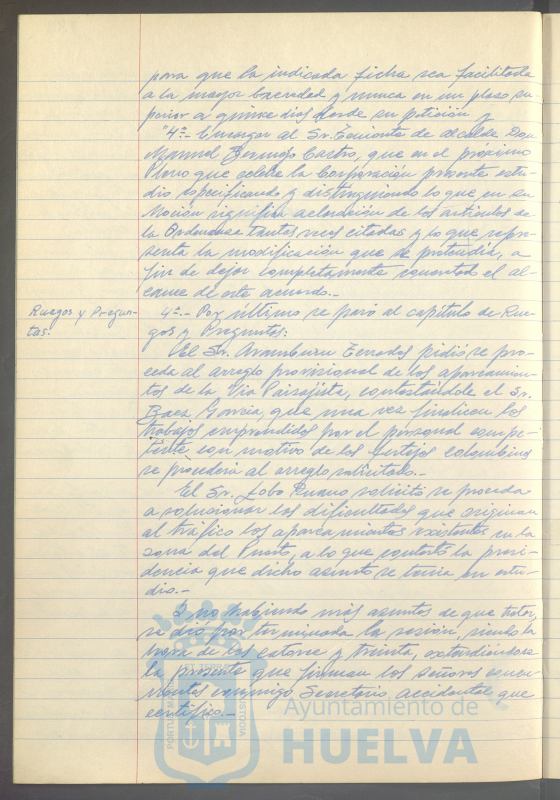 para que la indicada ficha sea facilitada
a la mayor brevedad y nunca en un plazo su-
perior a quince días desde su petición y
"4º.- Encargar al Sr. Teniente de alcalde Don
Manuel Bermejo Castro, que en el próximo
Pleno que celebre la Corporación presente estu-
dio especificando y distinguiendo lo que en su
Moción significa aclaración de los artículos de
la Ordenanza tantas veces citadas y lo que repre-
senta la modificación que se pretendía, a
fin de dejar completamente concretado el al-
cance de este acuerdo.-
Ruegos y Pregun-
tas.
4º.- Por último se pasó al capítulo de Rue-
gos y Preguntas:
El Sr. Aramburu Terrades pidió se pro-
ceda al arreglo provisional de los aparcamien-
tos de la Vía Paisajista, contestándole el Sr.
Baez García, que una vez finalicen los
trabajos emprendidos por el personal compe-
tente con motivo de los festejos colombinos
se procederá al arreglo solicitado.-
El Sr. Lobo Ruano solicitó se proceda
a solucionar las dificultades que originan
al tráfico los aparcamientos existentes en la
zona del Puerto, a lo que contestó la presi-
dencia que dicho asunto se tenía en estu-
dio.-
Y no habiendo más asuntos de que tratar,
se dió por terminada la sesión, siendo la
hora de las catorce y treinta, extendiéndose
la presente que firman los señores concu-
rrentes conmigo Secretario accidental que
certifico.-
PORTUS MARIS
CUSTODIA
Ayuntamiento de
HUELVA